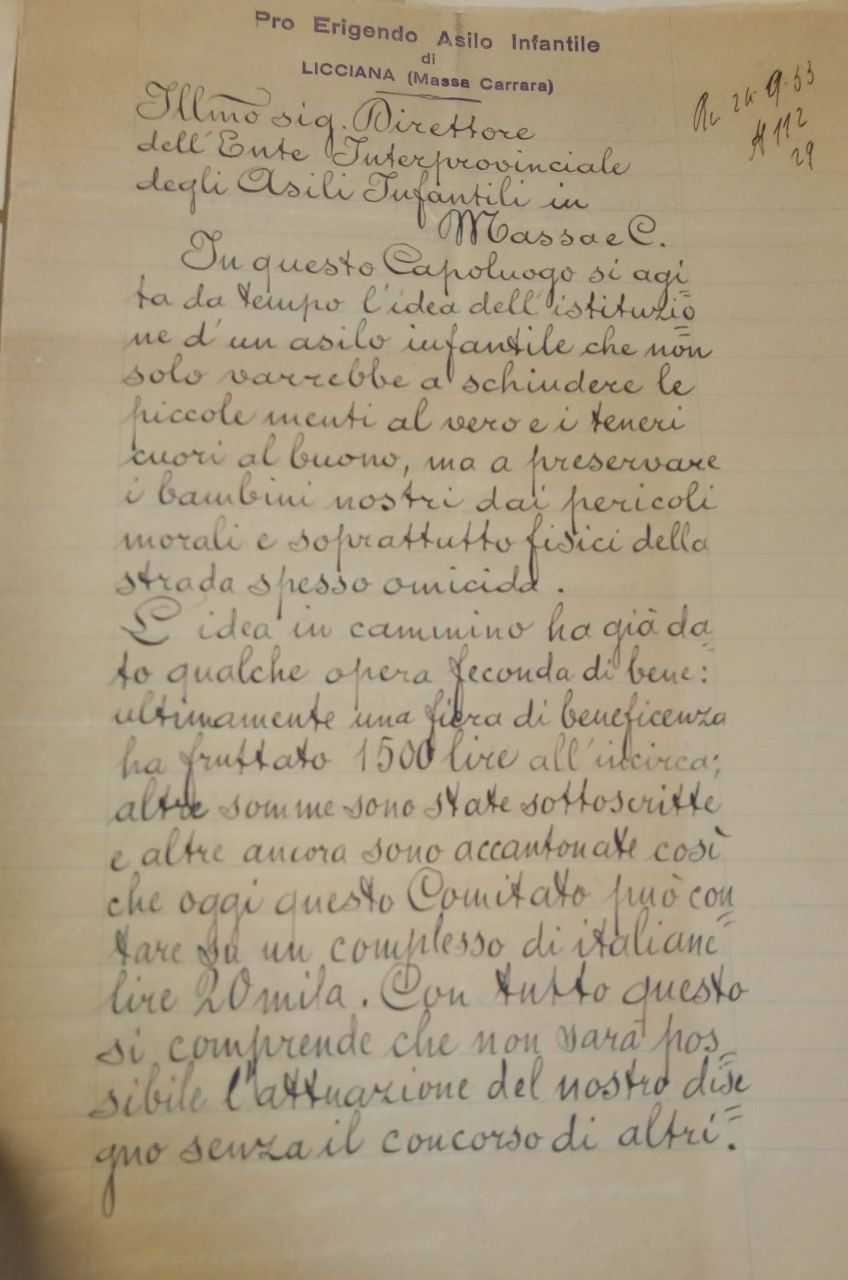 Pro Erigendo Asilo Infantile
di
LICCIANA (Massa Carrara)
Illmo sig. Direttore
dell'Ente Interprovinciale
degli Asili Infantili in
Massa e C.
In questo Capoluogo si agi=
ta da tempo l'idea dell'istituzio=
ne d'un asilo infantile che non
solo varrebbe a schiudere le
piccole menti al vero e i teneri
cuori al buono, ma a preservare
i bambini nostri dai pericoli
morali e soprattutto fisici della
strada spesso omicida.
L'idea in cammino ha già da=
to qualche opera feconda di bene:
ultimamente una fiera di beneficenza
ha fruttato 1500 lire all'incirca;
altre somme sono state sottoscritte
e altre ancora sono accantonate così
che oggi questo Comitato può con=
tare su un complesso di italiane
lire 20 mila. Con tutto questo
si comprende che non sarà pos=
sibile l'attuazione del nostro dise=
gno senza il concorso di altri.
112
29